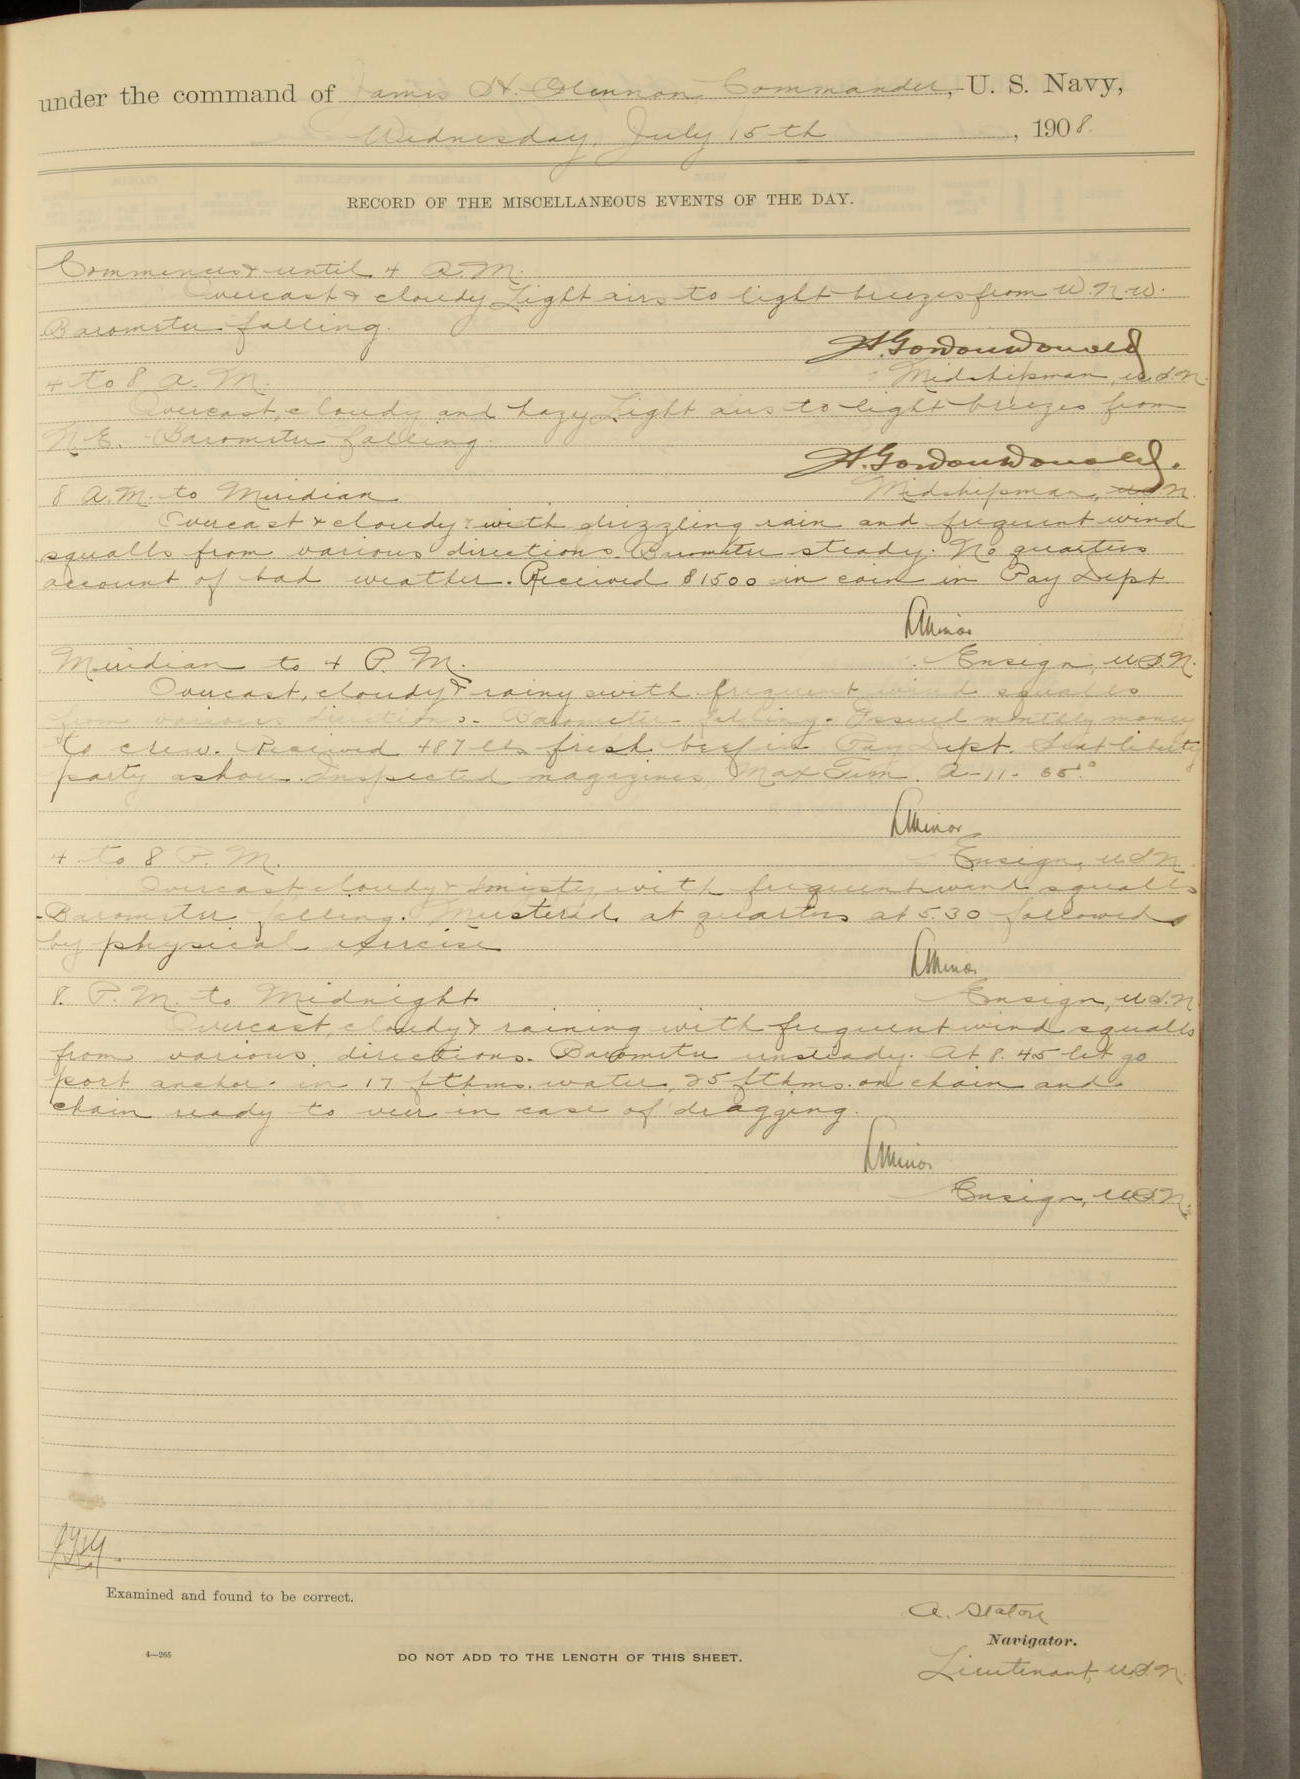 under the command of James H. Glennon, Commander, U. S. Navy,
Wednesday, July 15th, 1908.
RECORD OF THE MISCELLANEOUS EVENTS OF THE DAY.
Commences & until 4 A.M.
Overcast & cloudy Light airs to light breezes from W.N.W.
Barometer falling.
H. Gordon Donald
4 to 8 A. M.
Midshipman, U.S.N.
Overcast, cloudy and hazy Light airs to light breezes from
N.E. Barometer falling.
H. Gordon Donald.
8 A.M. to Meridian
Midshipman, U.S.N.
Overcast & cloudy with drizzling rain and frequent wind
squalls from various directions. Barometer steady. No quarters
account of bad weather. Received $1500 in coin in Pay Dept
L Minor
Meridian to 4 P. M.
Ensign, U.S.N.
Overcast, cloudy & rainy with frequent wind squalls
from various directions. Barometer falling. Issued monthly money
to crew. Received 487 lbs fresh beef in Pay Dept. Sent liberty
party ashore. Inspected magazines, Max Tem. A-11-
L Minor
4 to 8 P. M.
Ensign, U.S.N.
Overcast, cloudy & misty, with frequent wind squalls
Barometer falling. Mustered at quarters at 5.30 followed
by physical exercise
L Minor
8 P. M. to Midnight
Ensign, U.S.N.
Overcast, cloudy & raining with frequent wind squalls
from various directions. Barometer unsteady. At 8.45 let go
port anchor in 17 fthms. water, 25 fthms. on chain and
chain ready to veer in case of dragging.
L Minor
Ensign, U.S.N.
Examined and found to be correct.
A. Staton
Navigator.
4—265
DO NOT ADD TO THE LENGTH OF THIS SHEET.
Lieutenant, U.S.N.